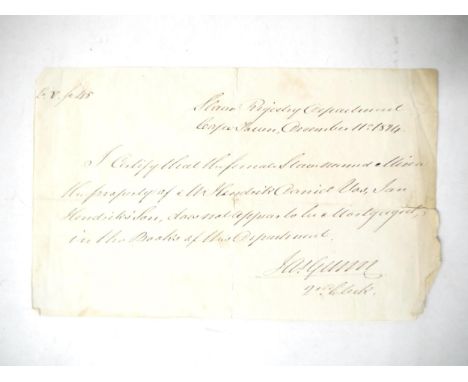 Slave Registry Department
Cape Town, December 11th 1824.
I Certify that the female Slave named Mina
the property of Mr Hendrick Daniel Vos, Jan
Hendrick Son, does not appear to be Mortgaged,
in the Books of this Department.
Jas Gunn
2nd Clerk.